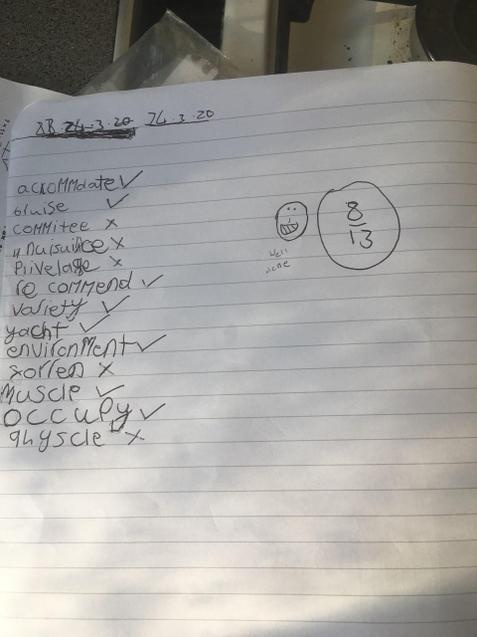 24.3.20 24.3.20
acKOMMdate ✓
bruise ✓
COMMitee x
nuisuince x
Privelage x
re COMMend ✓
variety ✓
yacht ✓
environMent ✓
x
Muscle ✓
OCCUPy ✓
Physcle x
8
13
Well
done